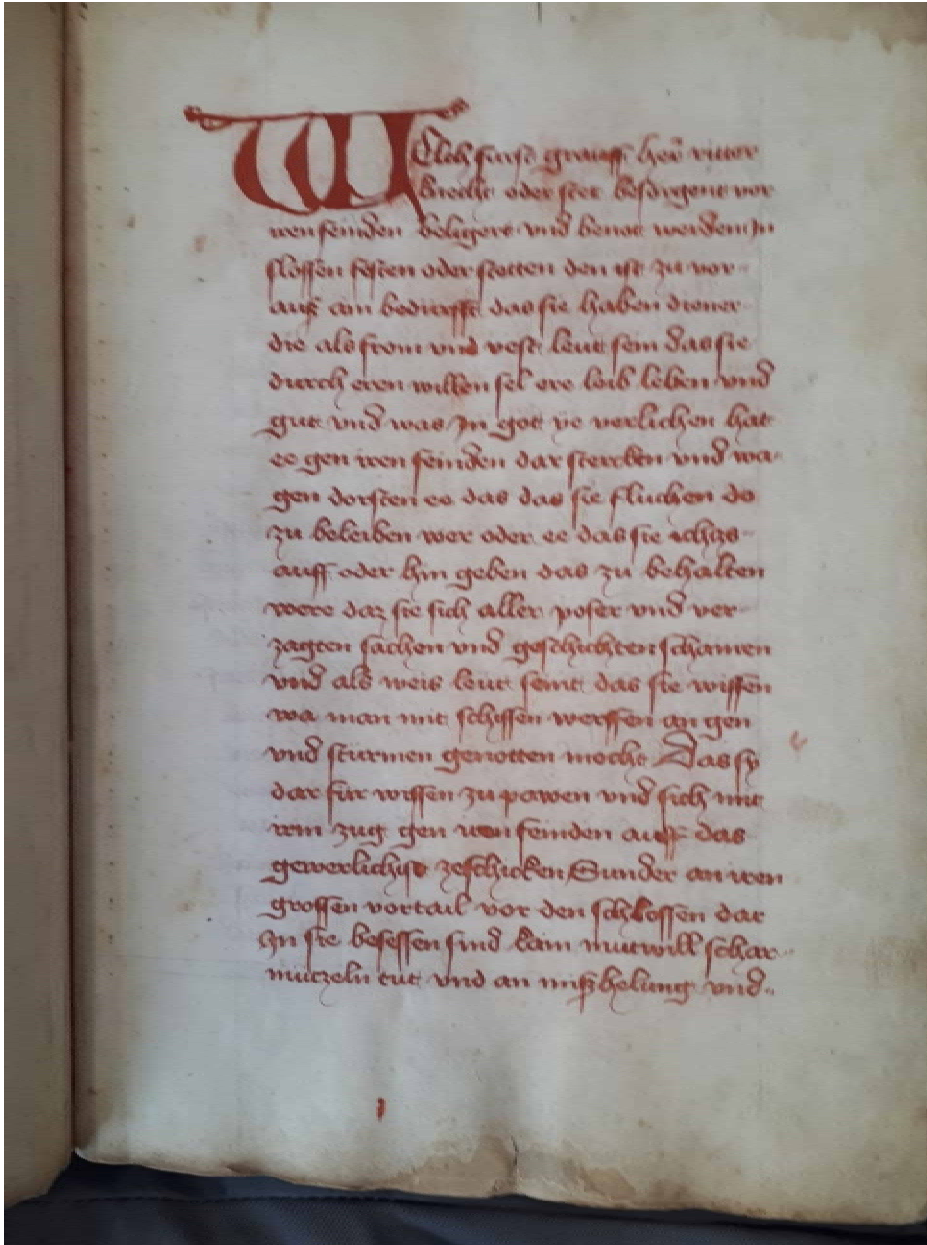 WElch furst grauff her ritter
knecht oder stet besorgent vor
iren feinden beligert vnd benot werden In
slossen festen oder stetten den ist zu vor
auß ain bedurfft das sie haben diener
die als from vnd vest leut sein das sie
durch eren willen sel ere leib leben vnd
gut vnd was In got ye verlichen hat
ee gen iren feinden dar strecken vnd wa
gen dorsten ee das das sie fluchen do
zu beleiben wer oder ee das sie ichtzs
auff oder hin geben das zu behalten
were daz sie sich aller poser vnd ver
zagten sachen vnd geschichten schamen
vnd als weis leut seint das sie wissen
wa man mit schissen werffen an gen
vnd sturmen genotten mocht Das sy
dar fur wissen zu pawen vnd sich mit
irm zug gen iren feinden auff das
gewerlichist zeschicken Sunder an iren
grossen vortail vor den schlossen dar
In sie besessen sind kain mutwill schar
mutzeln tut vnd an mißhelung vnd